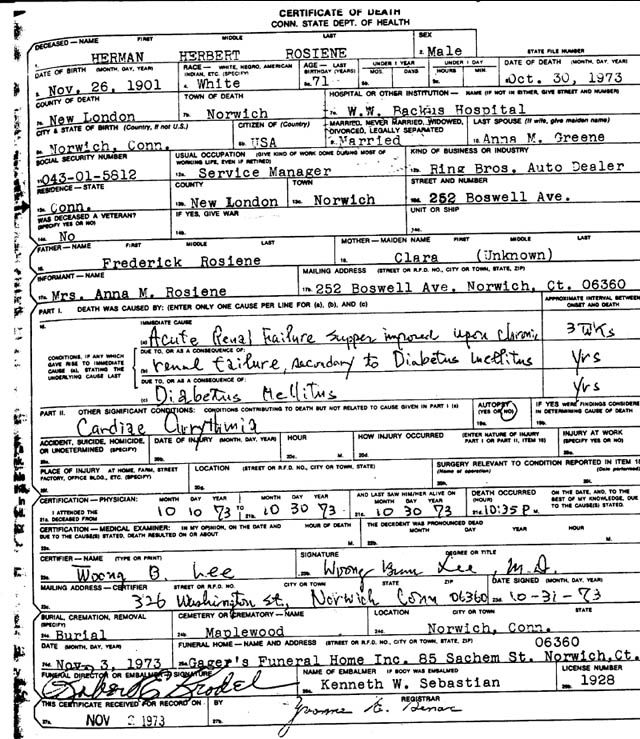 CERTIFICATE OF DEATH
CONN. STATE DEPT. OF HEALTH
DECEASED — NAME FIRST MIDDLE LAST SEX STATE FILE NUMBER
1. HERMAN HERBERT ROSIENE 2. Male
DATE OF BIRTH (MONTH, DAY, YEAR) RACE — WHITE, NEGRO, AMERICAN INDIAN, ETC. (SPECIFY) AGE — LAST BIRTHDAY (YEARS) UNDER 1 YEAR MOS. DAYS UNDER 1 DAY HOURS MIN. DATE OF DEATH (MONTH, DAY, YEAR)
Nov. 26, 1901 White 71 Oct. 30, 1973
COUNTY OF DEATH TOWN OF DEATH HOSPITAL OR OTHER INSTITUTION — NAME (IF NOT IN EITHER, GIVE STREET AND NUMBER)
7a. New London 7b. Norwich 7c. W.W. Backus Hospital
CITY & STATE OF BIRTH (Country, if not U.S.) CITIZEN OF (Country) MARRIED, NEVER MARRIED, WIDOWED, DIVORCED, LEGALLY SEPARATED LAST SPOUSE (If wife, give maiden name)
Norwich, Conn. USA Married Anna M. Greene
SOCIAL SECURITY NUMBER USUAL OCCUPATION (GIVE KIND OF WORK DONE DURING MOST OF WORKING LIFE, EVEN IF RETIRED) KIND OF BUSINESS OR INDUSTRY
043-01-5812 Service Manager Ring Bros. Auto Dealer
RESIDENCE — STATE COUNTY TOWN STREET AND NUMBER
Conn. New London Norwich 252 Boswell Ave.
WAS DECEASED A VETERAN? (SPECIFY YES OR NO) IF YES, GIVE WAR UNIT OR SHIP
14a. No 14b. 14c.
FATHER — NAME FIRST MIDDLE LAST MOTHER — MAIDEN NAME FIRST MIDDLE LAST
Frederick Rosiene Clara (Unknown)
INFORMANT — NAME MAILING ADDRESS (STREET OR R.F.D. NO., CITY OR TOWN, STATE, ZIP)
17a. Mrs. Anna M. Rosiene 17b. 252 Boswell Ave. Norwich, Ct. 06360
PART I. DEATH WAS CAUSED BY: (ENTER ONLY ONE CAUSE PER LINE FOR (a), (b), AND (c) APPROXIMATE INTERVAL BETWEEN ONSET AND DEATH
IMMEDIATE CAUSE
(a) Acute Renal Failure supper imposed upon chronic 3 wks
CONDITIONS, IF ANY WHICH GAVE RISE TO IMMEDIATE CAUSE (a), STATING THE UNDERLYING CAUSE LAST
DUE TO, OR AS A CONSEQUENCE OF:
(b) renal failure, secondary to Diabetus mellitus yrs
DUE TO, OR AS A CONSEQUENCE OF:
(c) Diabetus Mellitus yrs
PART II. OTHER SIGNIFICANT CONDITIONS: CONDITIONS CONTRIBUTING TO DEATH BUT NOT RELATED TO CAUSE GIVEN IN PART I (a) AUTOPSY (YES OR NO) IF YES WERE FINDINGS CONSIDERED IN DETERMINING CAUSE OF DEATH
Cardiac 19a. 19b.
ACCIDENT, SUICIDE, HOMICIDE, OR UNDETERMINED (SPECIFY) DATE OF INJURY (MONTH, DAY, YEAR) HOUR HOW INJURY OCCURRED (ENTER NATURE OF INJURY IN PART I OR PART II, ITEM 18) INJURY AT WORK (SPECIFY YES OR NO)
PLACE OF INJURY AT HOME, FARM, STREET FACTORY, OFFICE BLDG., ETC. (SPECIFY) LOCATION (STREET OR R.F.D. NO., CITY OR TOWN, STATE) SURGERY RELEVANT TO CONDITION REPORTED IN ITEM 18
(Name of operation) (Date performed)
CERTIFICATION — PHYSICIAN: MONTH DAY YEAR MONTH DAY YEAR AND LAST SAW HIM/HER ALIVE ON MONTH DAY YEAR DEATH OCCURRED (HOUR) ON THE DATE, AND, TO THE BEST OF MY KNOWLEDGE, DUE TO THE CAUSE(S) STATED.
I ATTENDED THE DECEASED FROM 10 10 73 TO 10 30 73 10 30 73 10:35 P M.
CERTIFICATION — MEDICAL EXAMINER: IN MY OPINION, ON THE DATE AND DUE TO THE CAUSE(S) STATED, DEATH RESULTED ON OR ABOUT HOUR OF DEATH THE DECEDENT WAS PRONOUNCED DEAD MONTH DAY YEAR HOUR
CERTIFIER — NAME (TYPE OR PRINT) SIGNATURE DEGREE OR TITLE
Woong B. Lee Woong Bum Lee, M.D.
MAILING ADDRESS — CERTIFIER STREET OR R.F.D. NO. CITY OR TOWN STATE ZIP DATE SIGNED (MONTH, DAY, YEAR)
326 Washington St, Norwich Conn 06360 10-31-73
BURIAL, CREMATION, REMOVAL (SPECIFY) CEMETERY OR CREMATORY — NAME LOCATION CITY OR TOWN STATE
24a. Burial 24b. Maplewood Norwich, Conn.
DATE (MONTH, DAY, YEAR) FUNERAL HOME — NAME AND ADDRESS (STREET OR R.F.D. NO., CITY OR TOWN, STATE, ZIP) 06360
Nov. 3, 1973 Gager's Funeral Home Inc. 85 Sachem St. Norwich, Ct.
FUNERAL DIRECTOR OR EMBALMER SIGNATURE NAME OF EMBALMER IF BODY WAS EMBALMED LICENSE NUMBER
Kenneth W. Sebastian 1928
THIS CERTIFICATE RECEIVED FOR RECORD ON BY REGISTRAR
NOV 2 1973 Yvonne